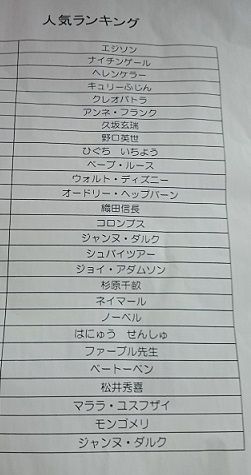 人気ランキング
エジソン
ナイチンゲール
ヘレンケラー
キュリーふじん
クレオパトラ
アンネ・フランク
久坂玄瑞
野口英世
ひぐち　いちよう
ベーブ・ルース
ウォルト・ディズニー
オードリー・ヘップバーン
織田信長
コロンブス
ジャンヌ・ダルク
シュバイツアー
ジョイ・アダムソン
杉原千畝
ネイマール
ノーベル
はにゅう　せんしゅ
ファーブル先生
ベートーベン
松井秀喜
マララ・ユスフザイ
モンゴメリ
ジャンヌ・ダルク